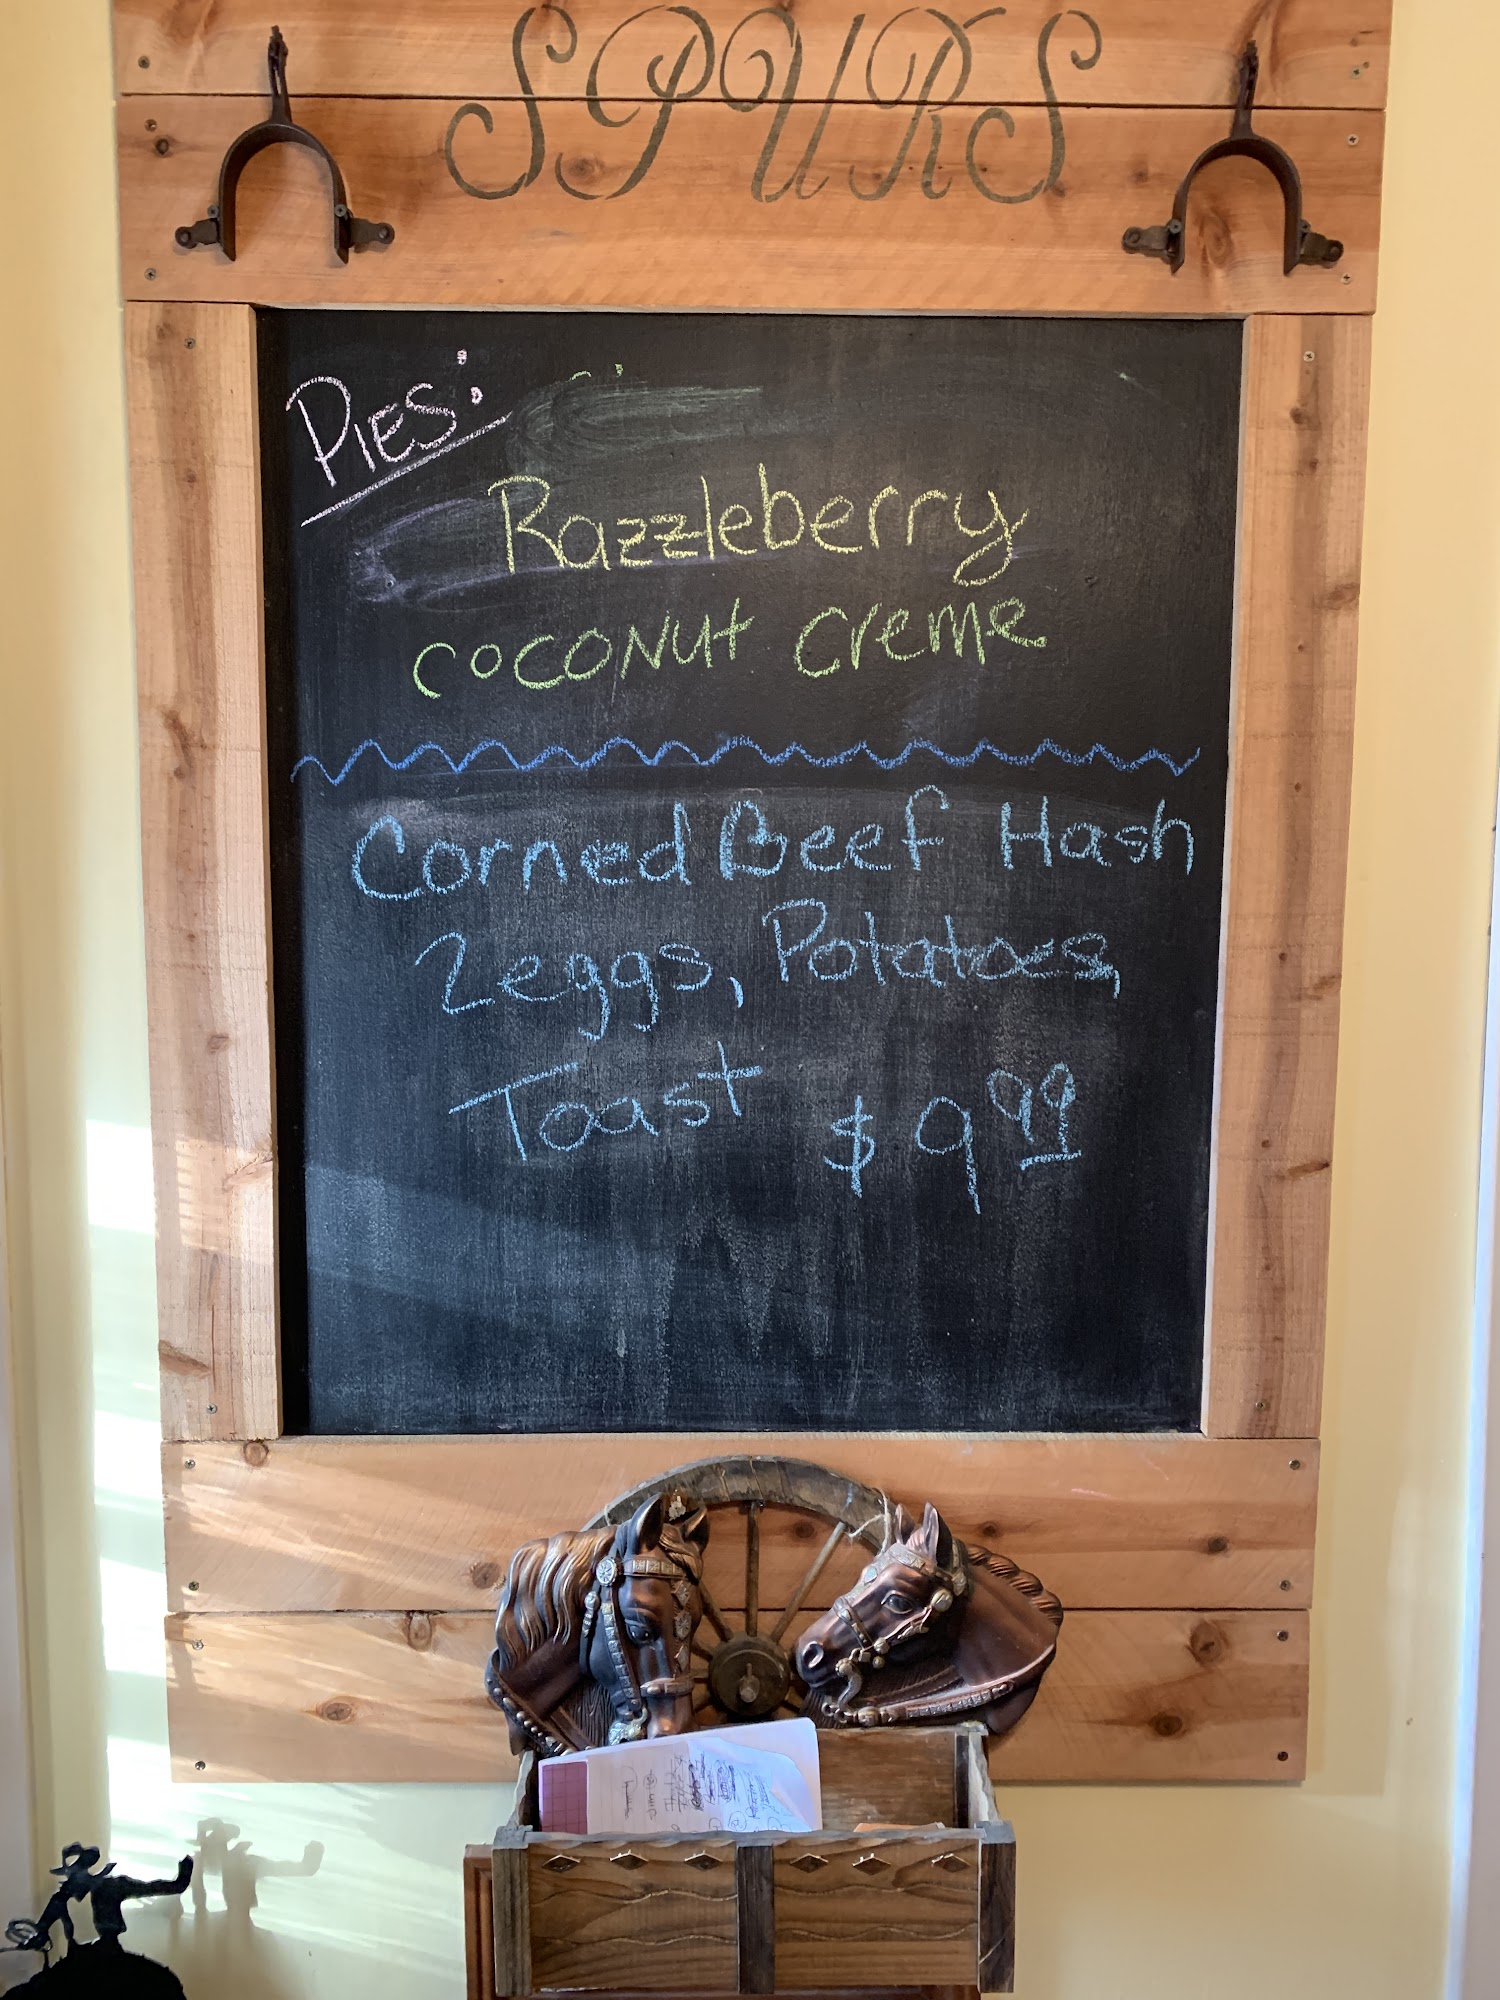 SPURS
Pies:
Razzleberry
coconut creme
Corned Beef Hash
2 eggs, Potatoes,
Toast $9.99